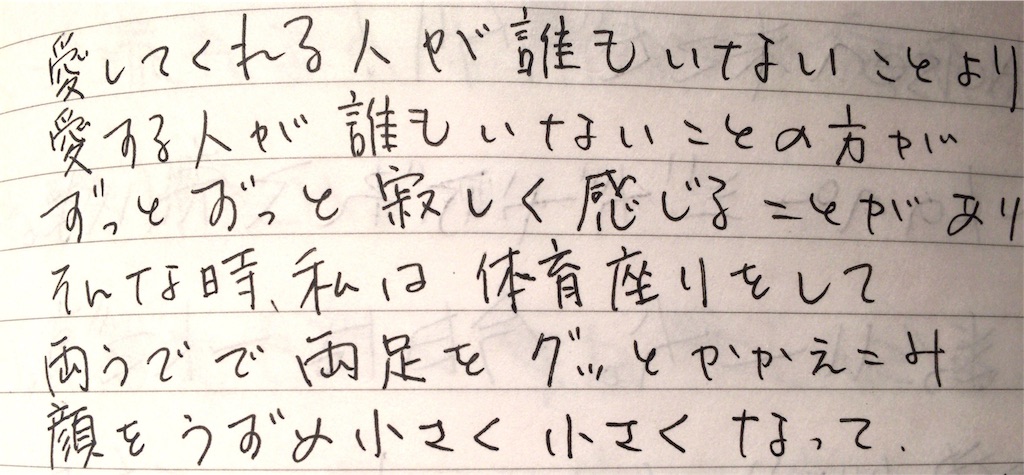 愛してくれる人が誰もいないことより
愛する人が誰もいないことの方が
ずっとずっと寂しく感じることがあり
そんな時、私は体育座りをして
両うでで両足をグッとかかえこみ
顔をうずめ小さく小さくなって、